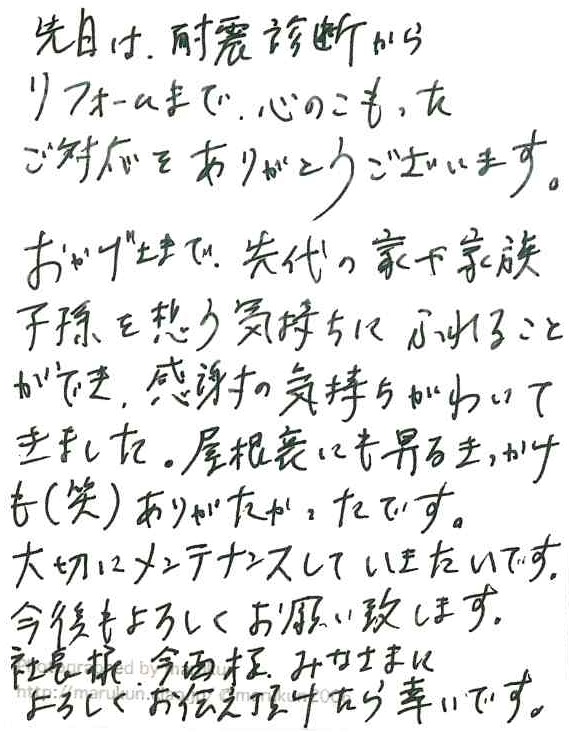 先日は、耐震診断から
リフォームまで、心のこもった
ご対応をありがとうございます。
おかげさまで、先代の家や家族
子孫を想う気持ちに ふれること
ができ、感謝すの気持ちがわいて
きました。屋根裏にも昇るきっかけ
も(笑)ありがたかったです。
大切にメンテナンスしていきたいです。
今後もよろしくお願い致します。
社長様、今西様、みなさまに
よろしくお伝え頂けたら幸いです。